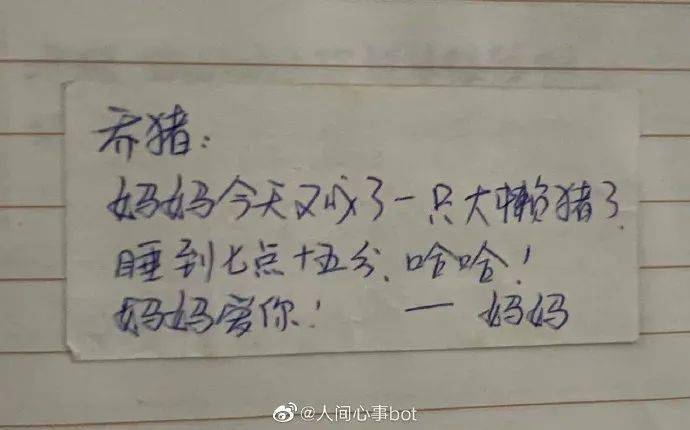 乔猪：
妈妈今天又成了一只大懒猪了
睡到七点十五分、哈哈！
妈妈爱你！ — 妈妈
@人间心事bot